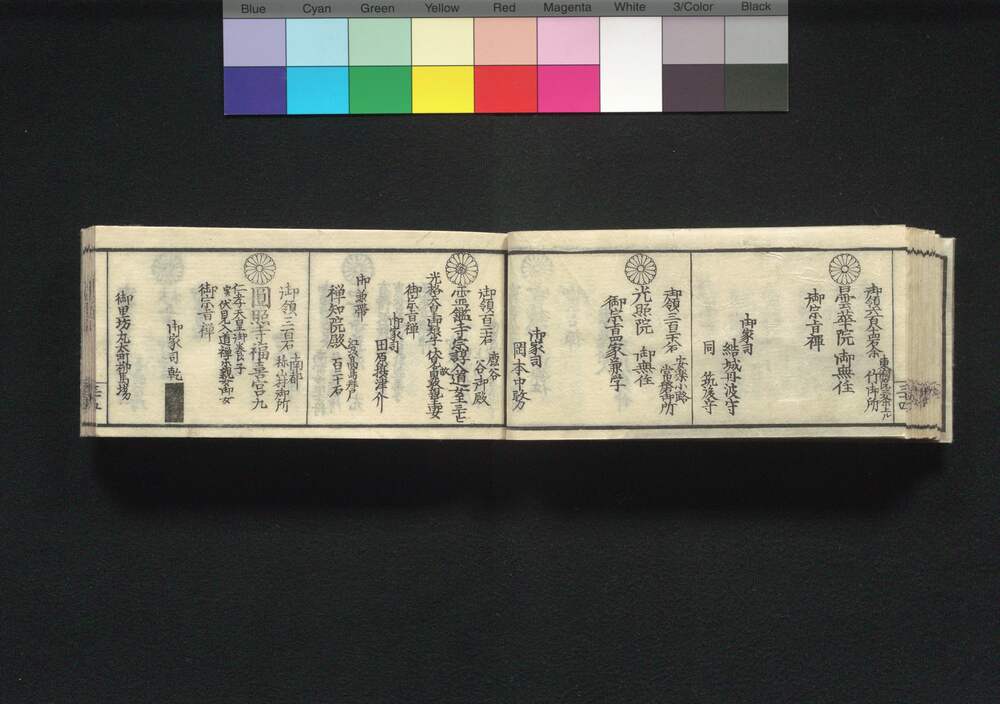 Blue Cyan Green Yellow Red Magenta White 3/Color Black
御領六百八十三石余
竹御所
曇華院 御無住
御宗旨禅
御家司
結城丹波守
同 筑後守
三ノ四
御領三百八十一石
安楽小路
常磐御所
光照院 御無住
御宗旨四家兼学
御家司
岡本中務
御領百二十石
鹿ケ谷
谷御殿
霊鑑寺宗諄
光格天皇御養子伏見
御宗旨禅
御家司
田原摂津介
御兼帯
禅知院殿
百三十石
御領三百石
南都
山村御所
圓照寺福喜宮九
仁孝天皇御養子
実伏見入道禅楽親王御女
御宗旨禅
御家司 乾
御里坊丸太町柳馬場
三ノ五